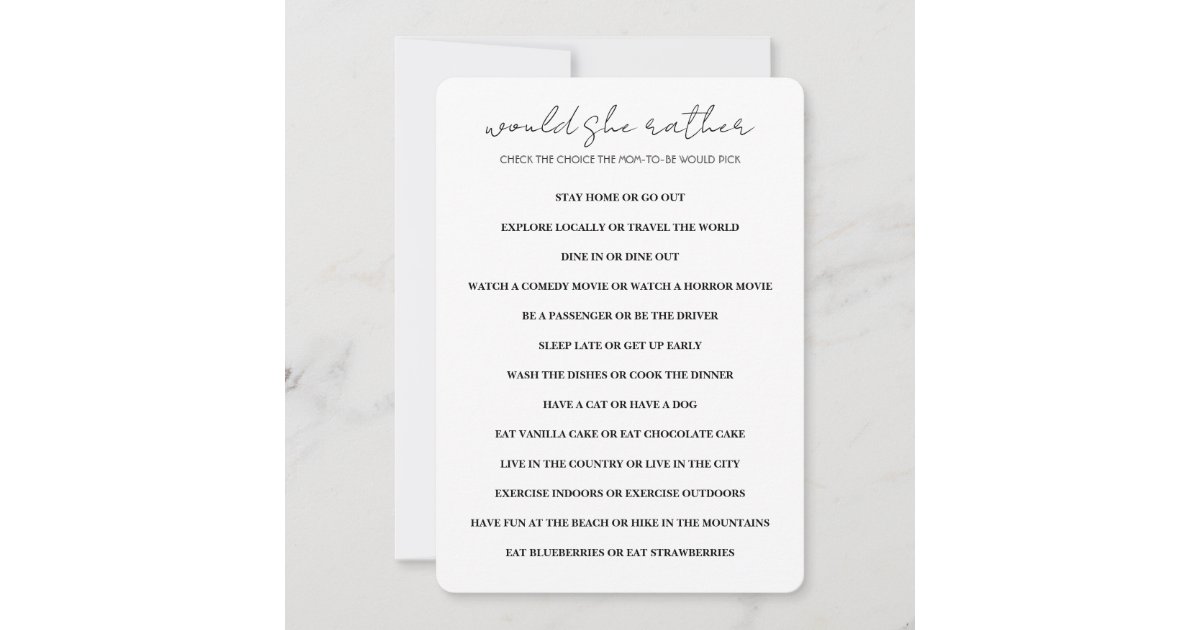 would she rather
CHECK THE CHOICE THE MOM-TO-BE WOULD PICK
STAY HOME OR GO OUT
EXPLORE LOCALLY OR TRAVEL THE WORLD
DINE IN OR DINE OUT
WATCH A COMEDY MOVIE OR WATCH A HORROR MOVIE
BE A PASSENGER OR BE THE DRIVER
SLEEP LATE OR GET UP EARLY
WASH THE DISHES OR COOK THE DINNER
HAVE A CAT OR HAVE A DOG
EAT VANILLA CAKE OR EAT CHOCOLATE CAKE
LIVE IN THE COUNTRY OR LIVE IN THE CITY
EXERCISE INDOORS OR EXERCISE OUTDOORS
HAVE FUN AT THE BEACH OR HIKE IN THE MOUNTAINS
EAT BLUEBERRIES OR EAT STRAWBERRIES